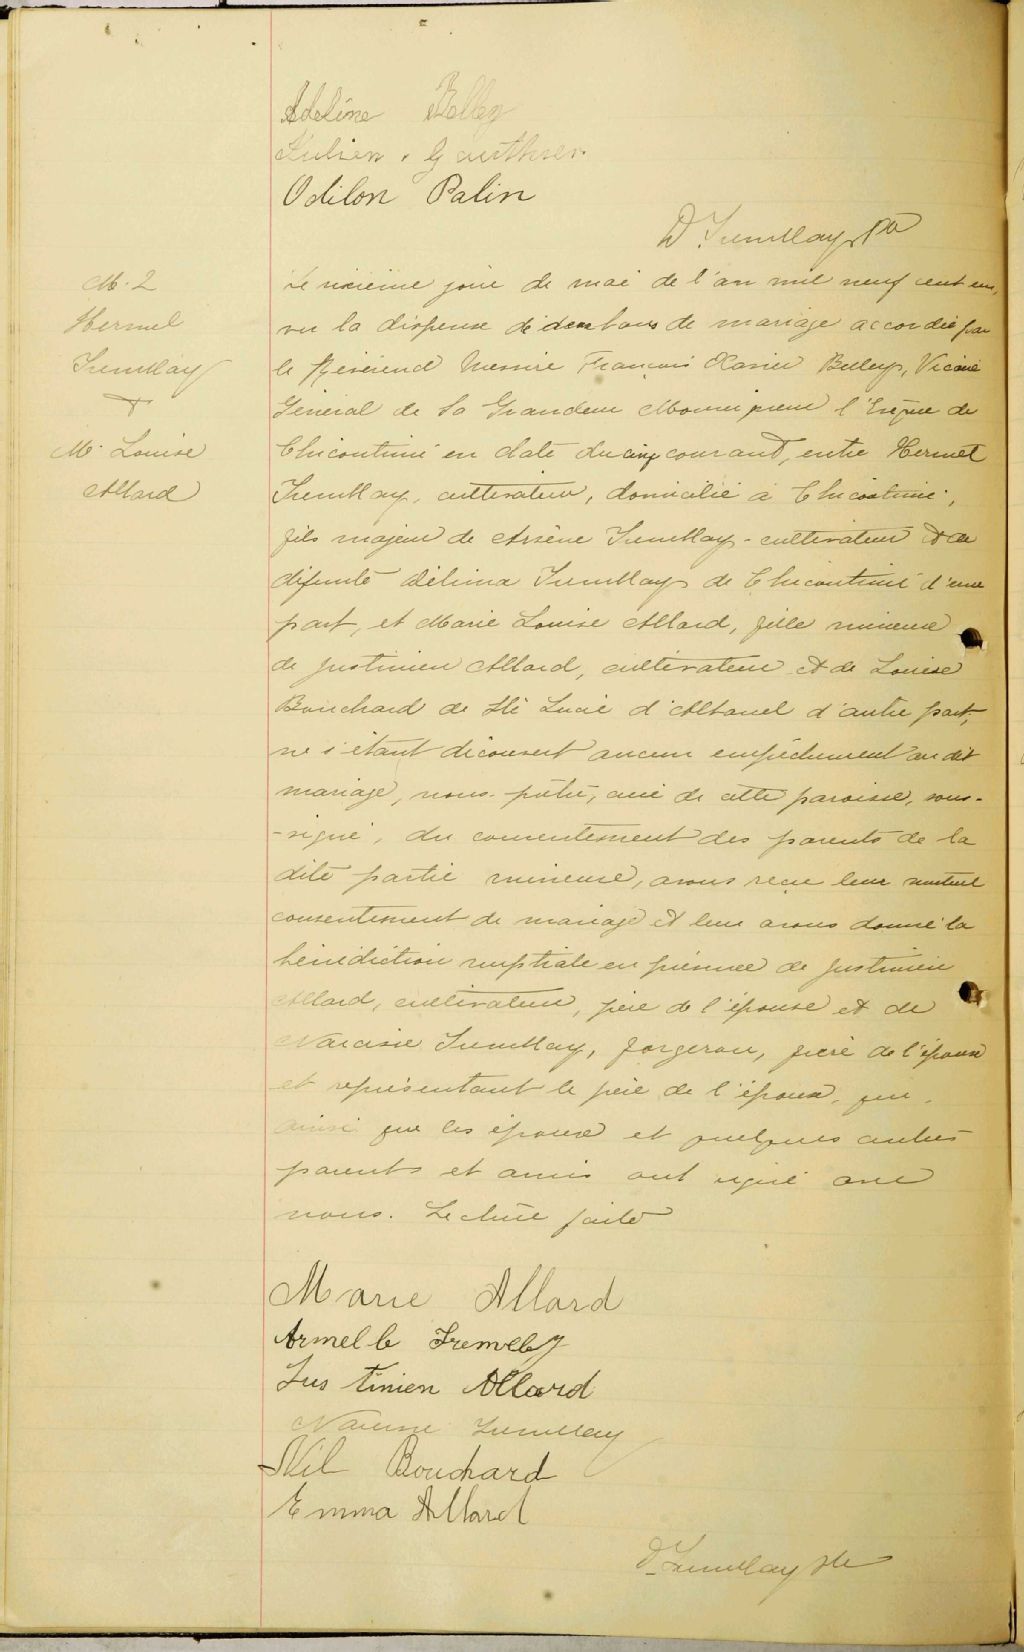 Adeline Belley
Julien Gauthier
Odilon Palin
D. Tremblay Ptr
M. 2
Hermel
Tremblay
&
M. Louise
Allard
Le sixième jour de mai de l'an mil neuf cent un,
vu la dispense de deux bans de mariage accordée par
le Révérend Messire François Xavier Belley, Vicaire
Général de Sa Grandeur Monseigneur l'Evêque de
Chicoutimi en date du cinq courant, entre Hermel
Tremblay, cultivateur, domicilié à Chicoutimi,
fils majeur de Arsène Tremblay - cultivateur & de
défunte Délima Tremblay de Chicoutimi d'une
part, et Marie Louise Allard, fille mineure
de Justinien Allard, cultivateur & de Louise
Bouchard de Ste Lucie d'Albanel d'autre part;
ne s'étant découvert aucun empêchement au dit
mariage, nous prêtre, curé de cette paroisse, sous-
-signé, du consentement des parents de la
dite partie mineure, avons reçu leur mutuel
consentement de mariage & leur avons donné la
bénédiction nuptiale en présence de Justinien
Allard, cultivateur, père de l'épouse et de
Narcisse Tremblay, forgeron, frère de l'époux
et représentant le père de l'époux, qui,
ainsi que les époux et quelques autres
parents et amis ont signé avec
nous. Lecture faite
Marie Allard
Armelle Tremblay
Jus tinien Allard
Narcisse Tremblay
Nil Bouchard
Emma Allard
D. Tremblay Ptr